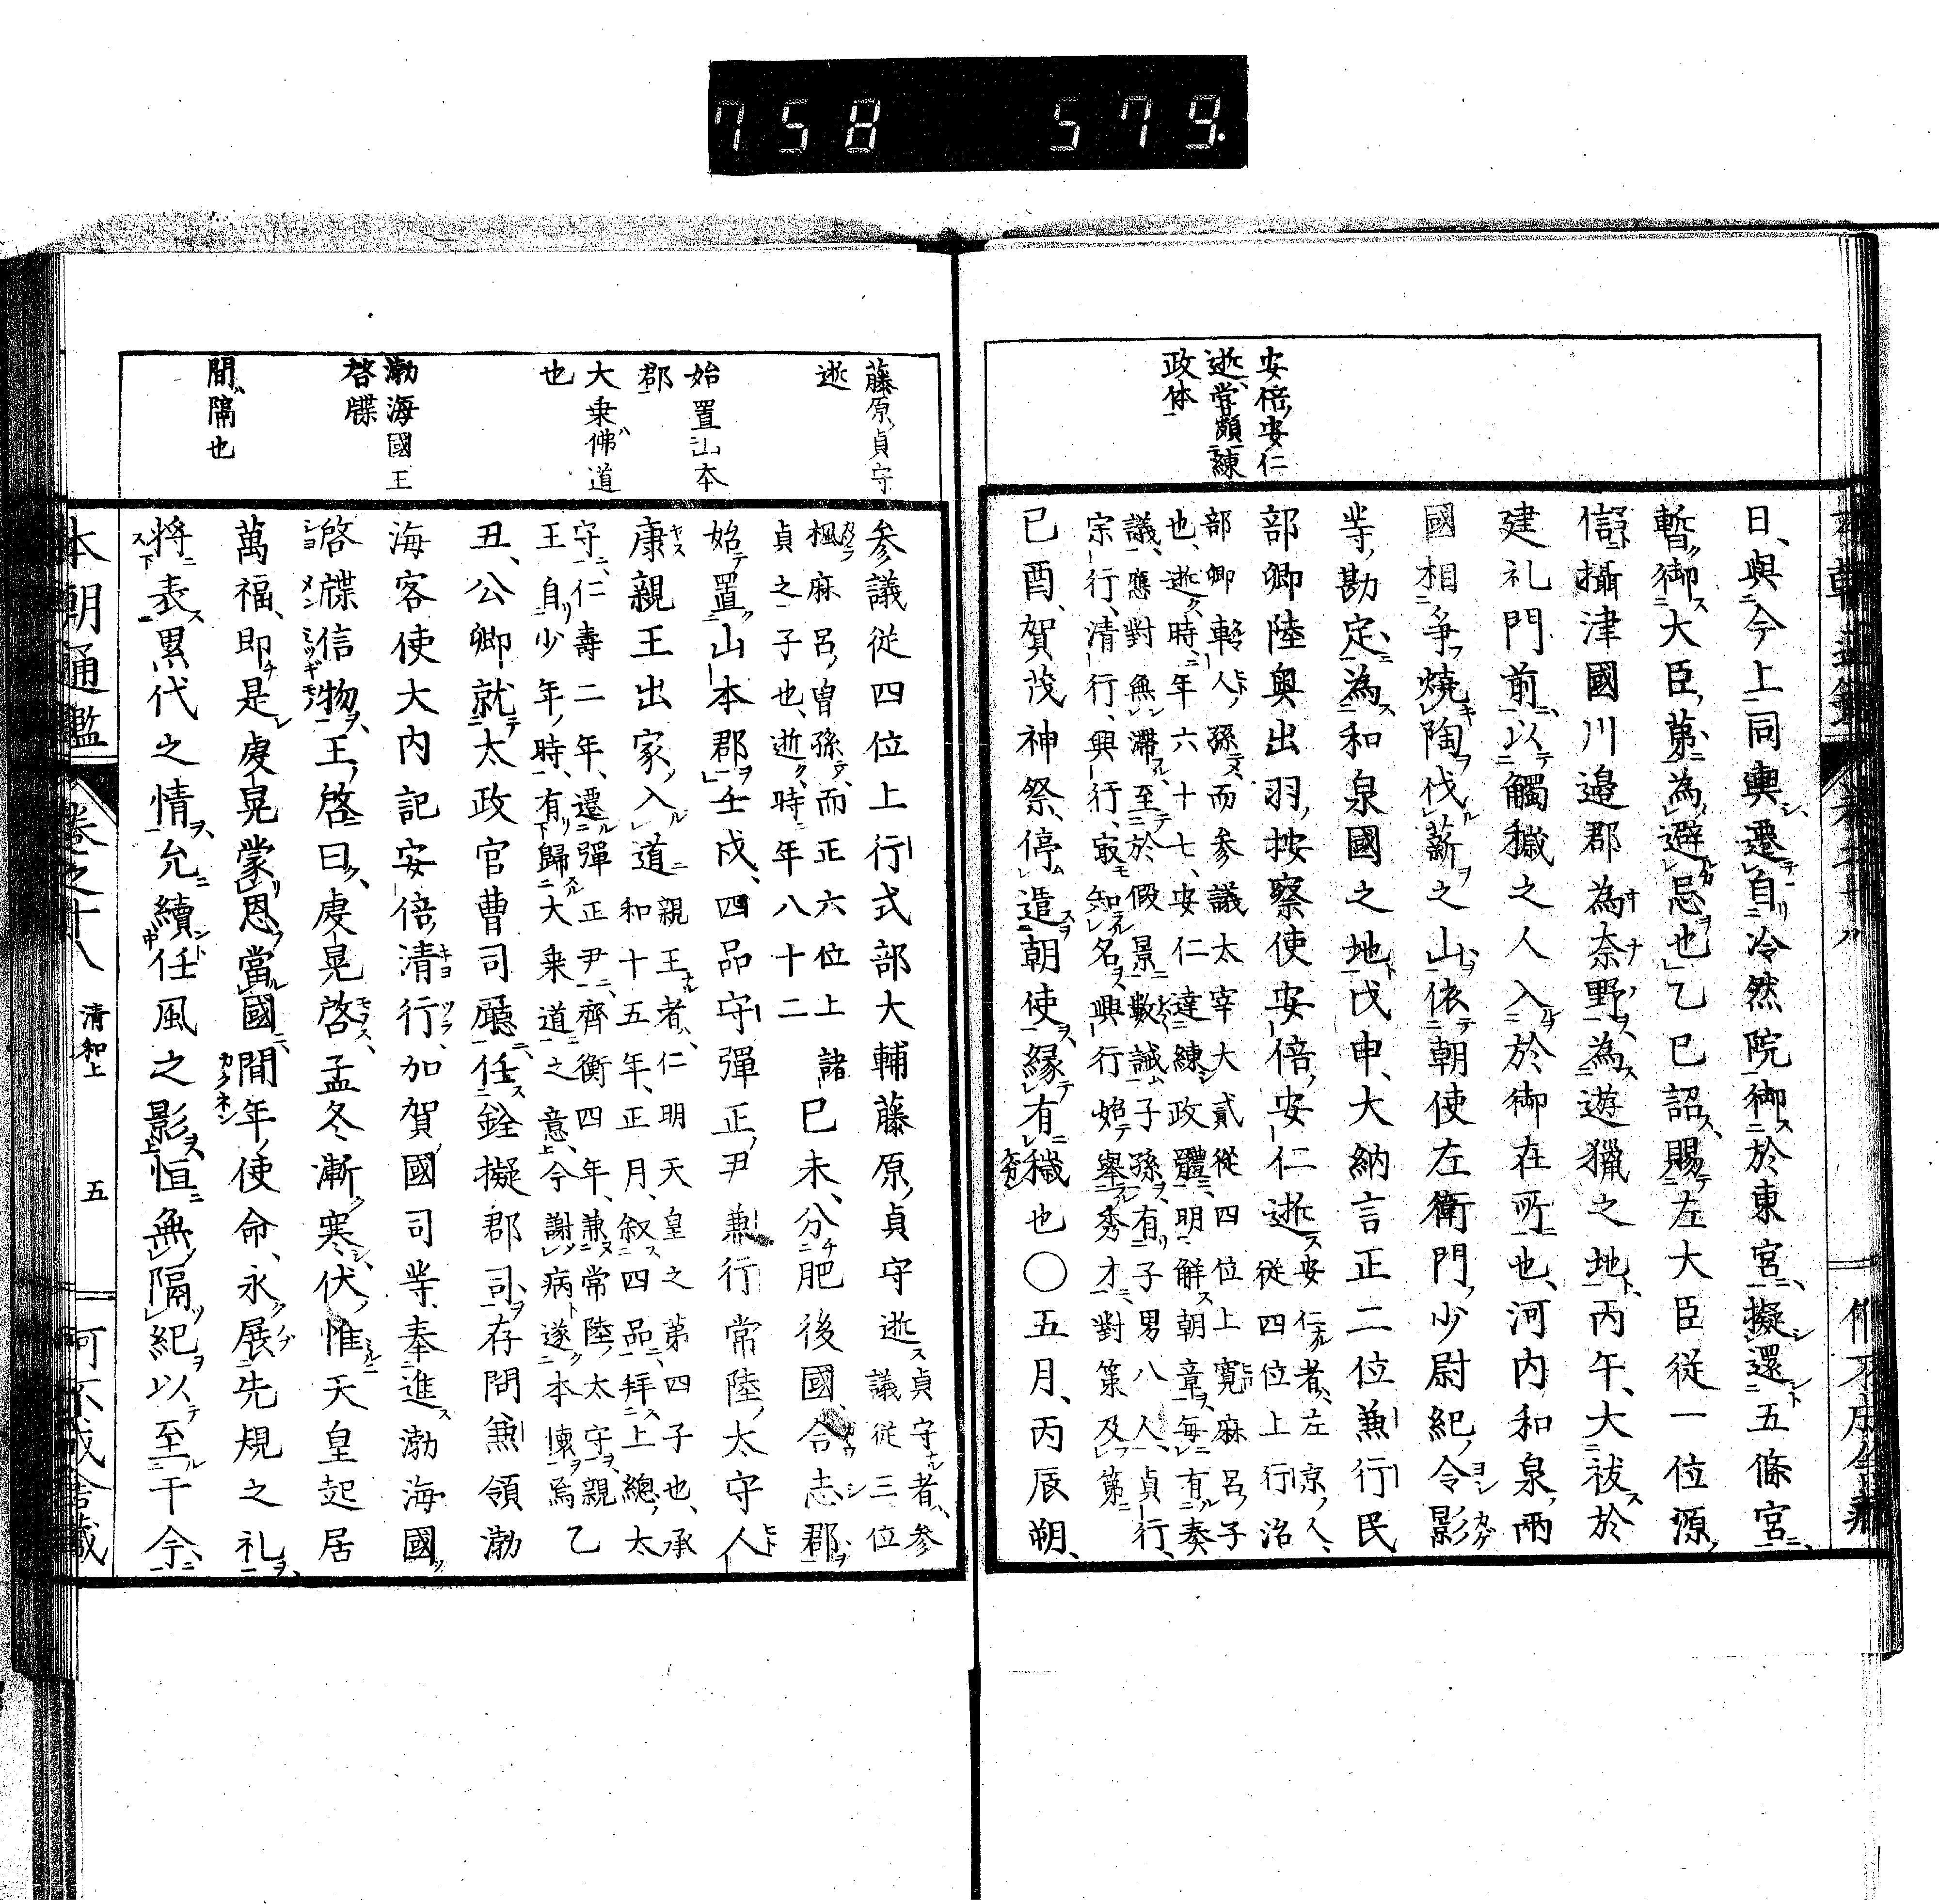 758 579.
安倍安仁
逝嘗頗練
政体
日與今上同輿遷自冷然院御於東宮擬還五條宮
暫御大臣第為避忌也乙巳詔賜左大臣従一位源
信攝津國川邉郡為奈野為遊獵之地丙午大祓於
建礼門前以觸穢之人入於御在所也河内和泉兩
國相爭燒陶伐薪之山依朝使左衛門少尉紀令影
䒭勘定為和泉國之地戊申大納言正二位兼行民
部卿陸奥出羽按察使安倍安仁逝安仁者左京人
従四位上行治
部卿
人孫而参議太宰大貳従四位上寛麻呂子
也逝時年六十七安仁達練政體明解朝章每有奏
議應對無滯至於假景數誡子孫有子男八人貞行
宗行清行興行㝡知名興行始舉秀才對策及第
已酉賀茂神祭停遣朝使縁有穢也〇五月丙辰朔
藤原貞守
逝
始置山本
郡
大乗佛道
也
渤海國王
啓牒
間隔也
参議従四位上行式部大輔藤原貞守逝貞守者参
議従三位
楓麻呂曽孫而正六位上諸
貞之子也逝時年八十二
巳未分肥後國合志郡
始置山本郡壬戌四品守彈正尹兼行常陸太守人
康親王出家入道親王者仁明天皇之第四子也承
和十五年正月叙四品拜上總太
守仁壽二年遷彈正尹齊衡四年兼常陸太守親
王自少年時有歸大乗道之意今謝病遂本懐焉
乙
丑公卿就太政官曹司廳任銓擬郡司存問兼領渤
海客使大内記安倍清行加賀國司䒭奉進渤海國
啓牒信物王啓曰虔晃啓孟冬漸寒伏惟天皇起居
萬福即是虔晃蒙恩當國間年使命永展先規之礼
將表累代之情允續任風之影恒無隔紀以至于今
本朝通鑑 卷之十八 清和上 五